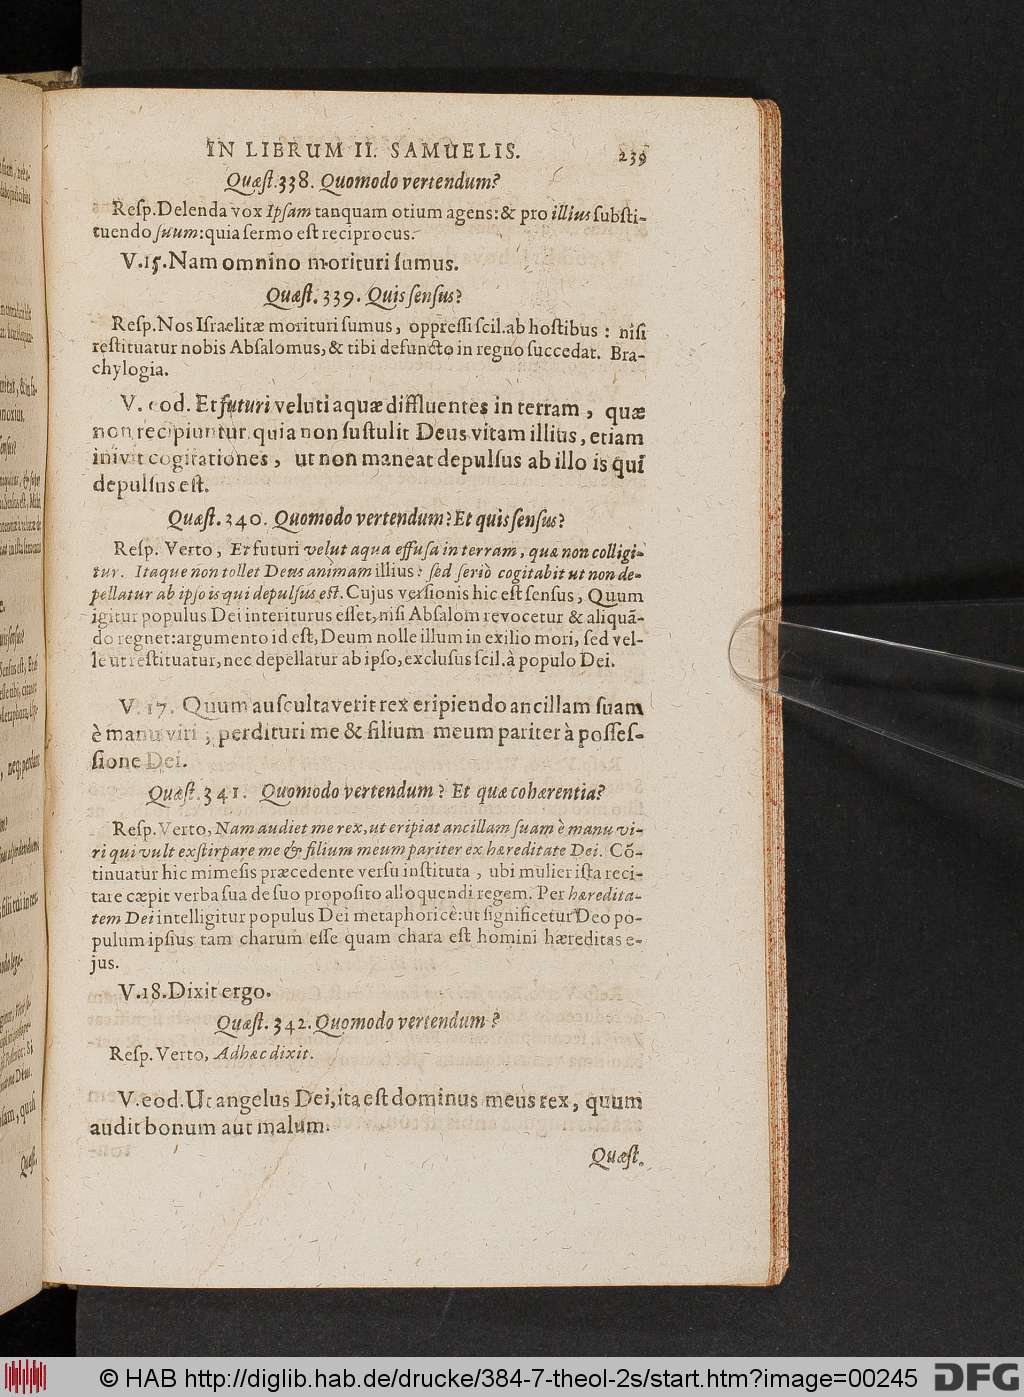 IN LIBRUM II. SAMUELIS. 239
Quæſt. 338. Quomodo vertendum?
Reſp. Delenda vox Ipſam tanquam otium agens: & pro illius ſubſti-
tuendo ſuum: quia ſermo eſt reciprocus.
V. 15. Nam omnino morituri ſumus.
Quæſt. 339. Quis ſenſus?
Reſp. Nos Iſraelitæ morituri ſumus, oppreſſi ſcil. ab hoſtibus: niſi
reſtituatur nobis Abſalomus, & tibi defuncto in regno ſuccedat. Bra-
chylogia.
V. eod. Et futuri veluti aquæ diffluentes in terram, quæ
non recipiuntur, quia non ſuſtulit Deus vitam illius, etiam
inivit cogitationes, ut non maneat depulſus ab illo is qui
depulſus eſt.
Quæſt. 340. Quomodo vertendum? Et quis ſenſus?
Reſp. Verto, Et futuri velut aqua effuſa in terram, quæ non colligi-
tur. Itaque non tollet Deus animam illius: ſed ſeriò cogitabit ut non de-
pellatur ab ipſo is qui depulſus eſt. Cujus verſionis hic eſt ſenſus, Quum
igitur populus Dei interiturus eſſet, niſi Abſalom revocetur & aliquã-
do regnet: argumento id eſt, Deum nolle illum in exilio mori, ſed vel-
le ut reſtituatur, nec depellatur ab ipſo, excluſus ſcil. à populo Dei.
V. 17. Quum auſcultaverit rex eripiendo ancillam ſuam
è manu viri, perdituri me & filium meum pariter à poſſeſ-
ſione Dei.
Quæſt. 341. Quomodo vertendum? Et quæ cohærentia?
Reſp. Verto, Nam audiet me rex, ut eripiat ancillam ſuam è manu vi-
ri qui vult exſtirpare me & filium meum pariter ex hæreditate Dei. Cõ-
tinuatur hic mimeſis præcedente verſu inſtituta, ubi mulier iſta reci-
tare cæpit verba ſua de ſuo propoſito alloquendi regem. Per hæredita-
tem Dei intelligitur populus Dei metaphoricè: ut ſignificetur Deo po-
pulum ipſius tam charum eſſe quam chara eſt homini hæreditas e-
jus.
V. 18. Dixit ergo.
Quæſt. 342. Quomodo vertendum?
Reſp. Verto, Adhæc dixit.
V. eod. Ut angelus Dei, ita eſt dominus meus rex, quum
audit bonum aut malum.
Quæſt.
© HAB http://diglib.hab.de/drucke/384-7-theol-2s/start.htm?image=00245
DFG